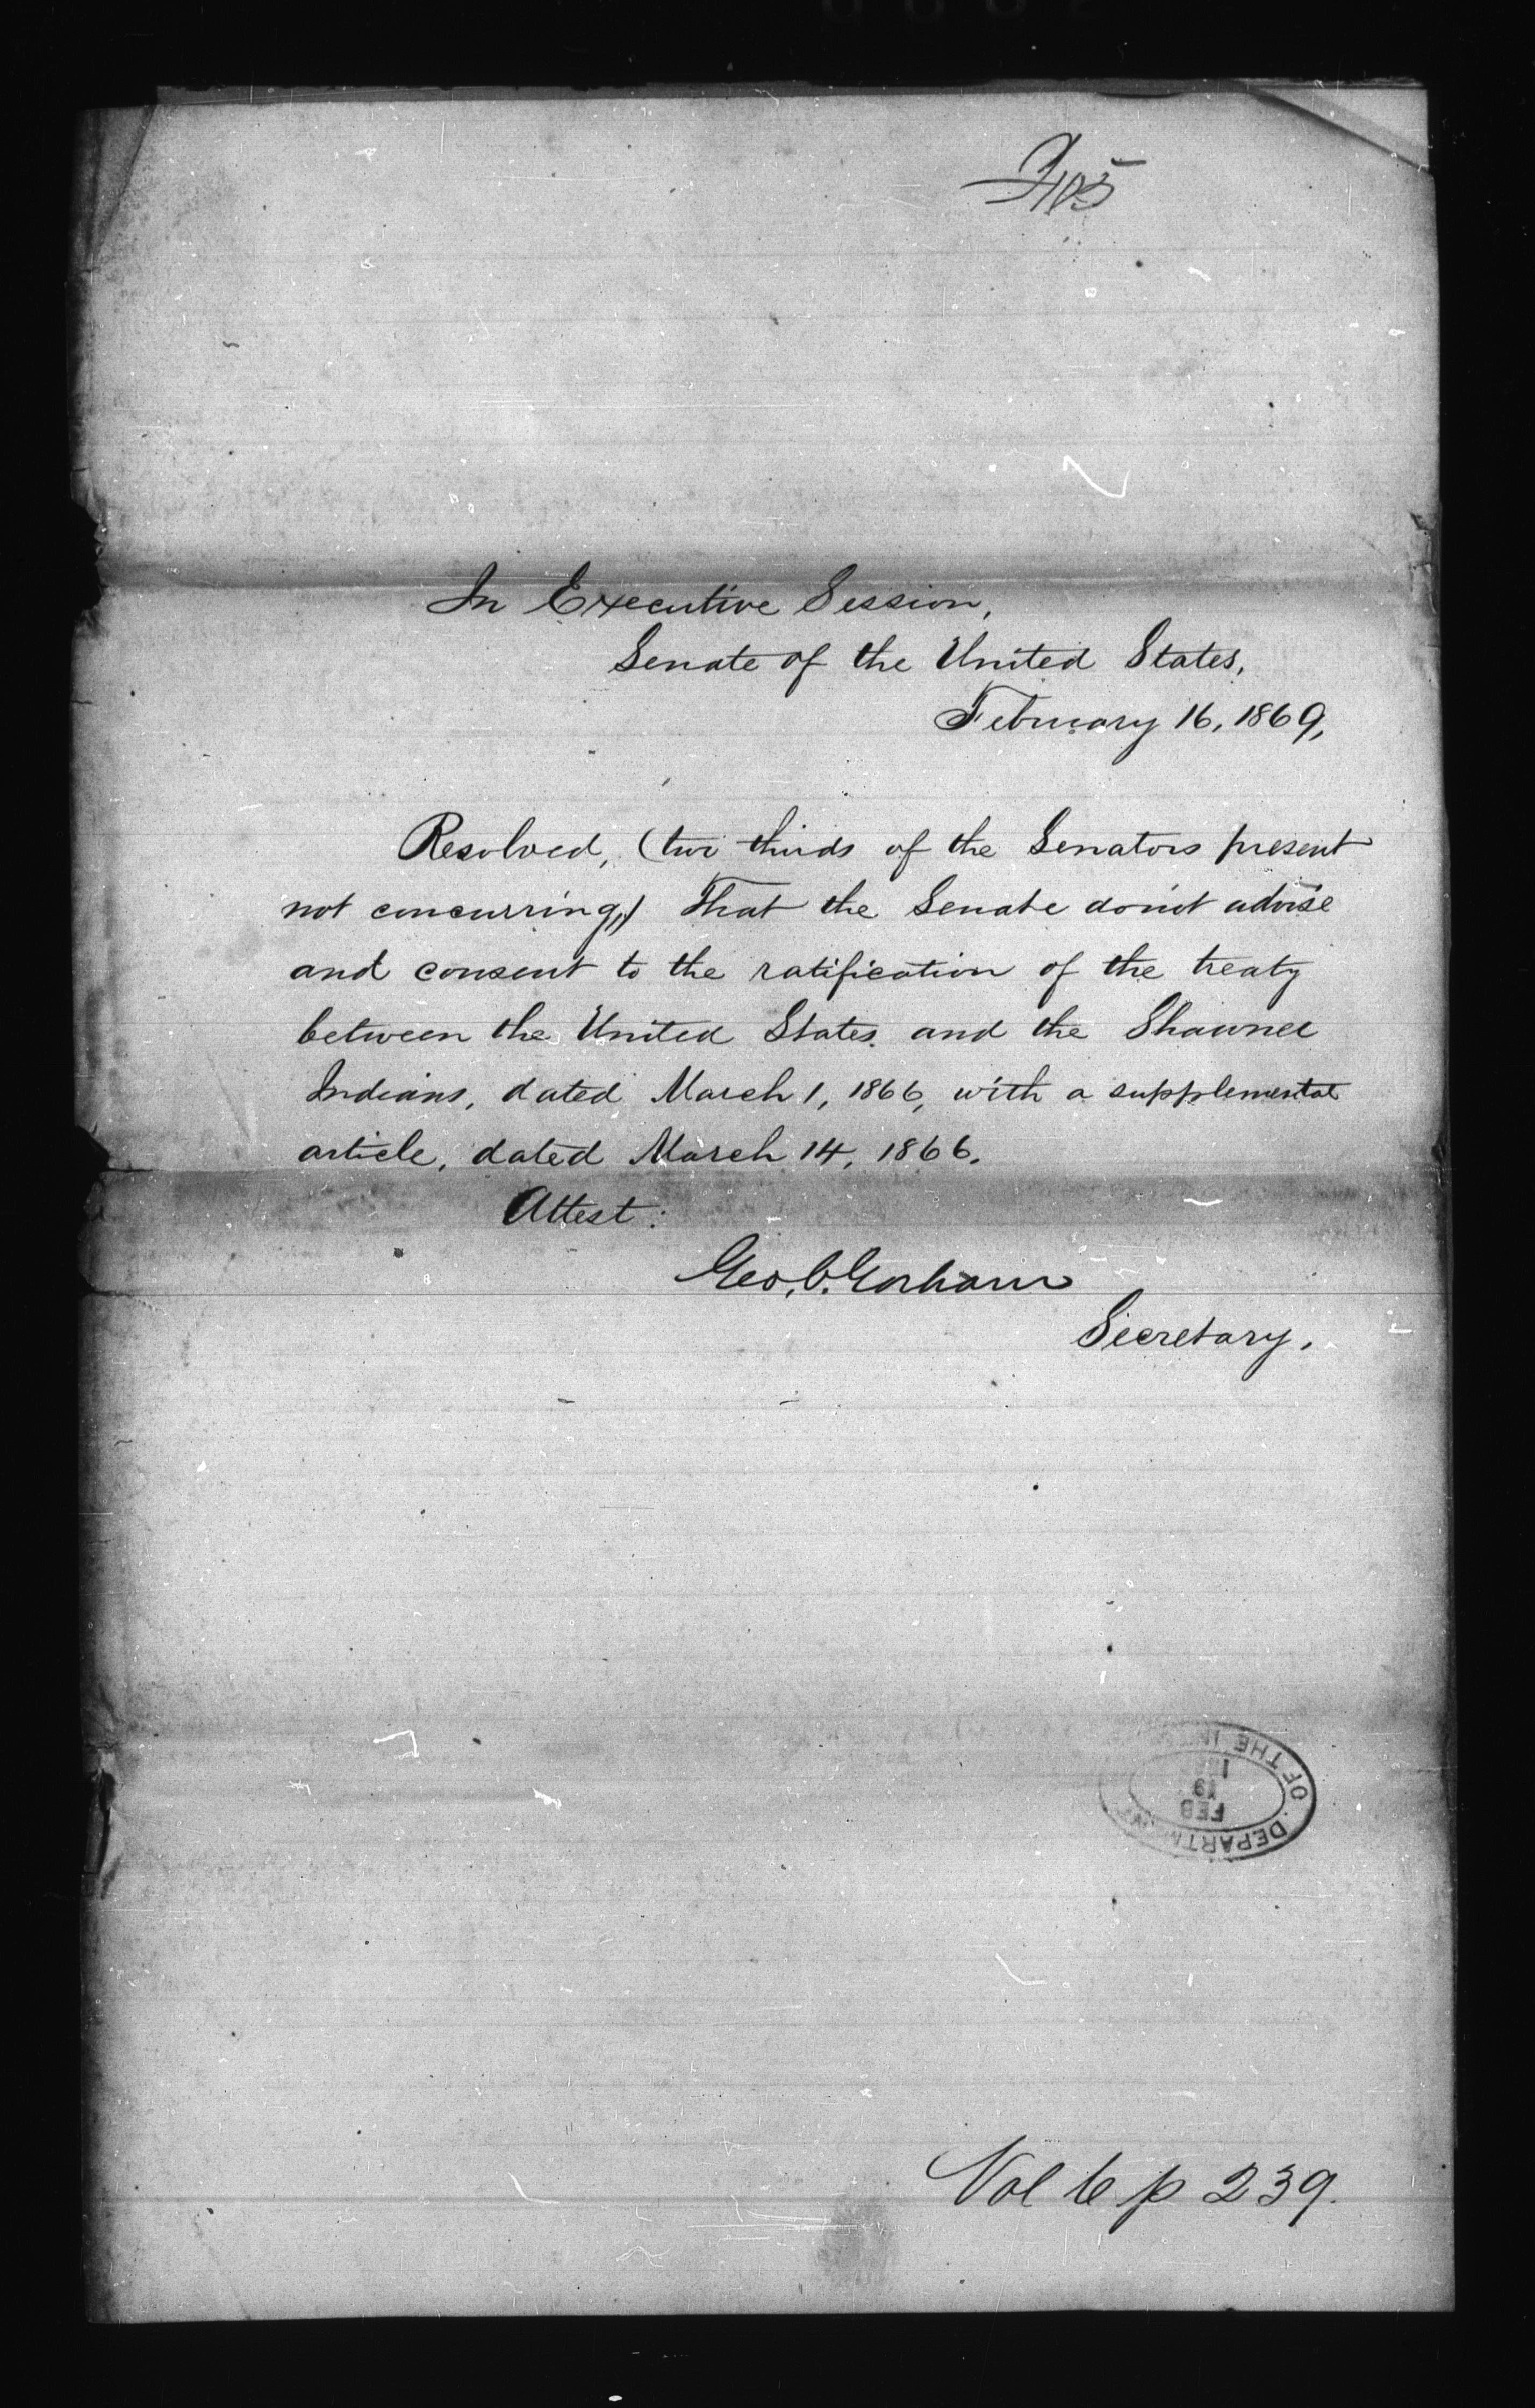 In Executive Session,
Senate of the United States,
February 16, 1869,
Resolved, (two thirds of the Senators present
not concurring,) That the Senate do not advise
and consent to the ratification of the treaty
between the United States and the Shawnee
Indians, dated March 1, 1866, with a supplemental
article, dated March 14, 1866.
Attest:
Geo. C. Gorham
Secretary.
DEPARTMENT OF THE
FEB
19
Vol 6 p 239.